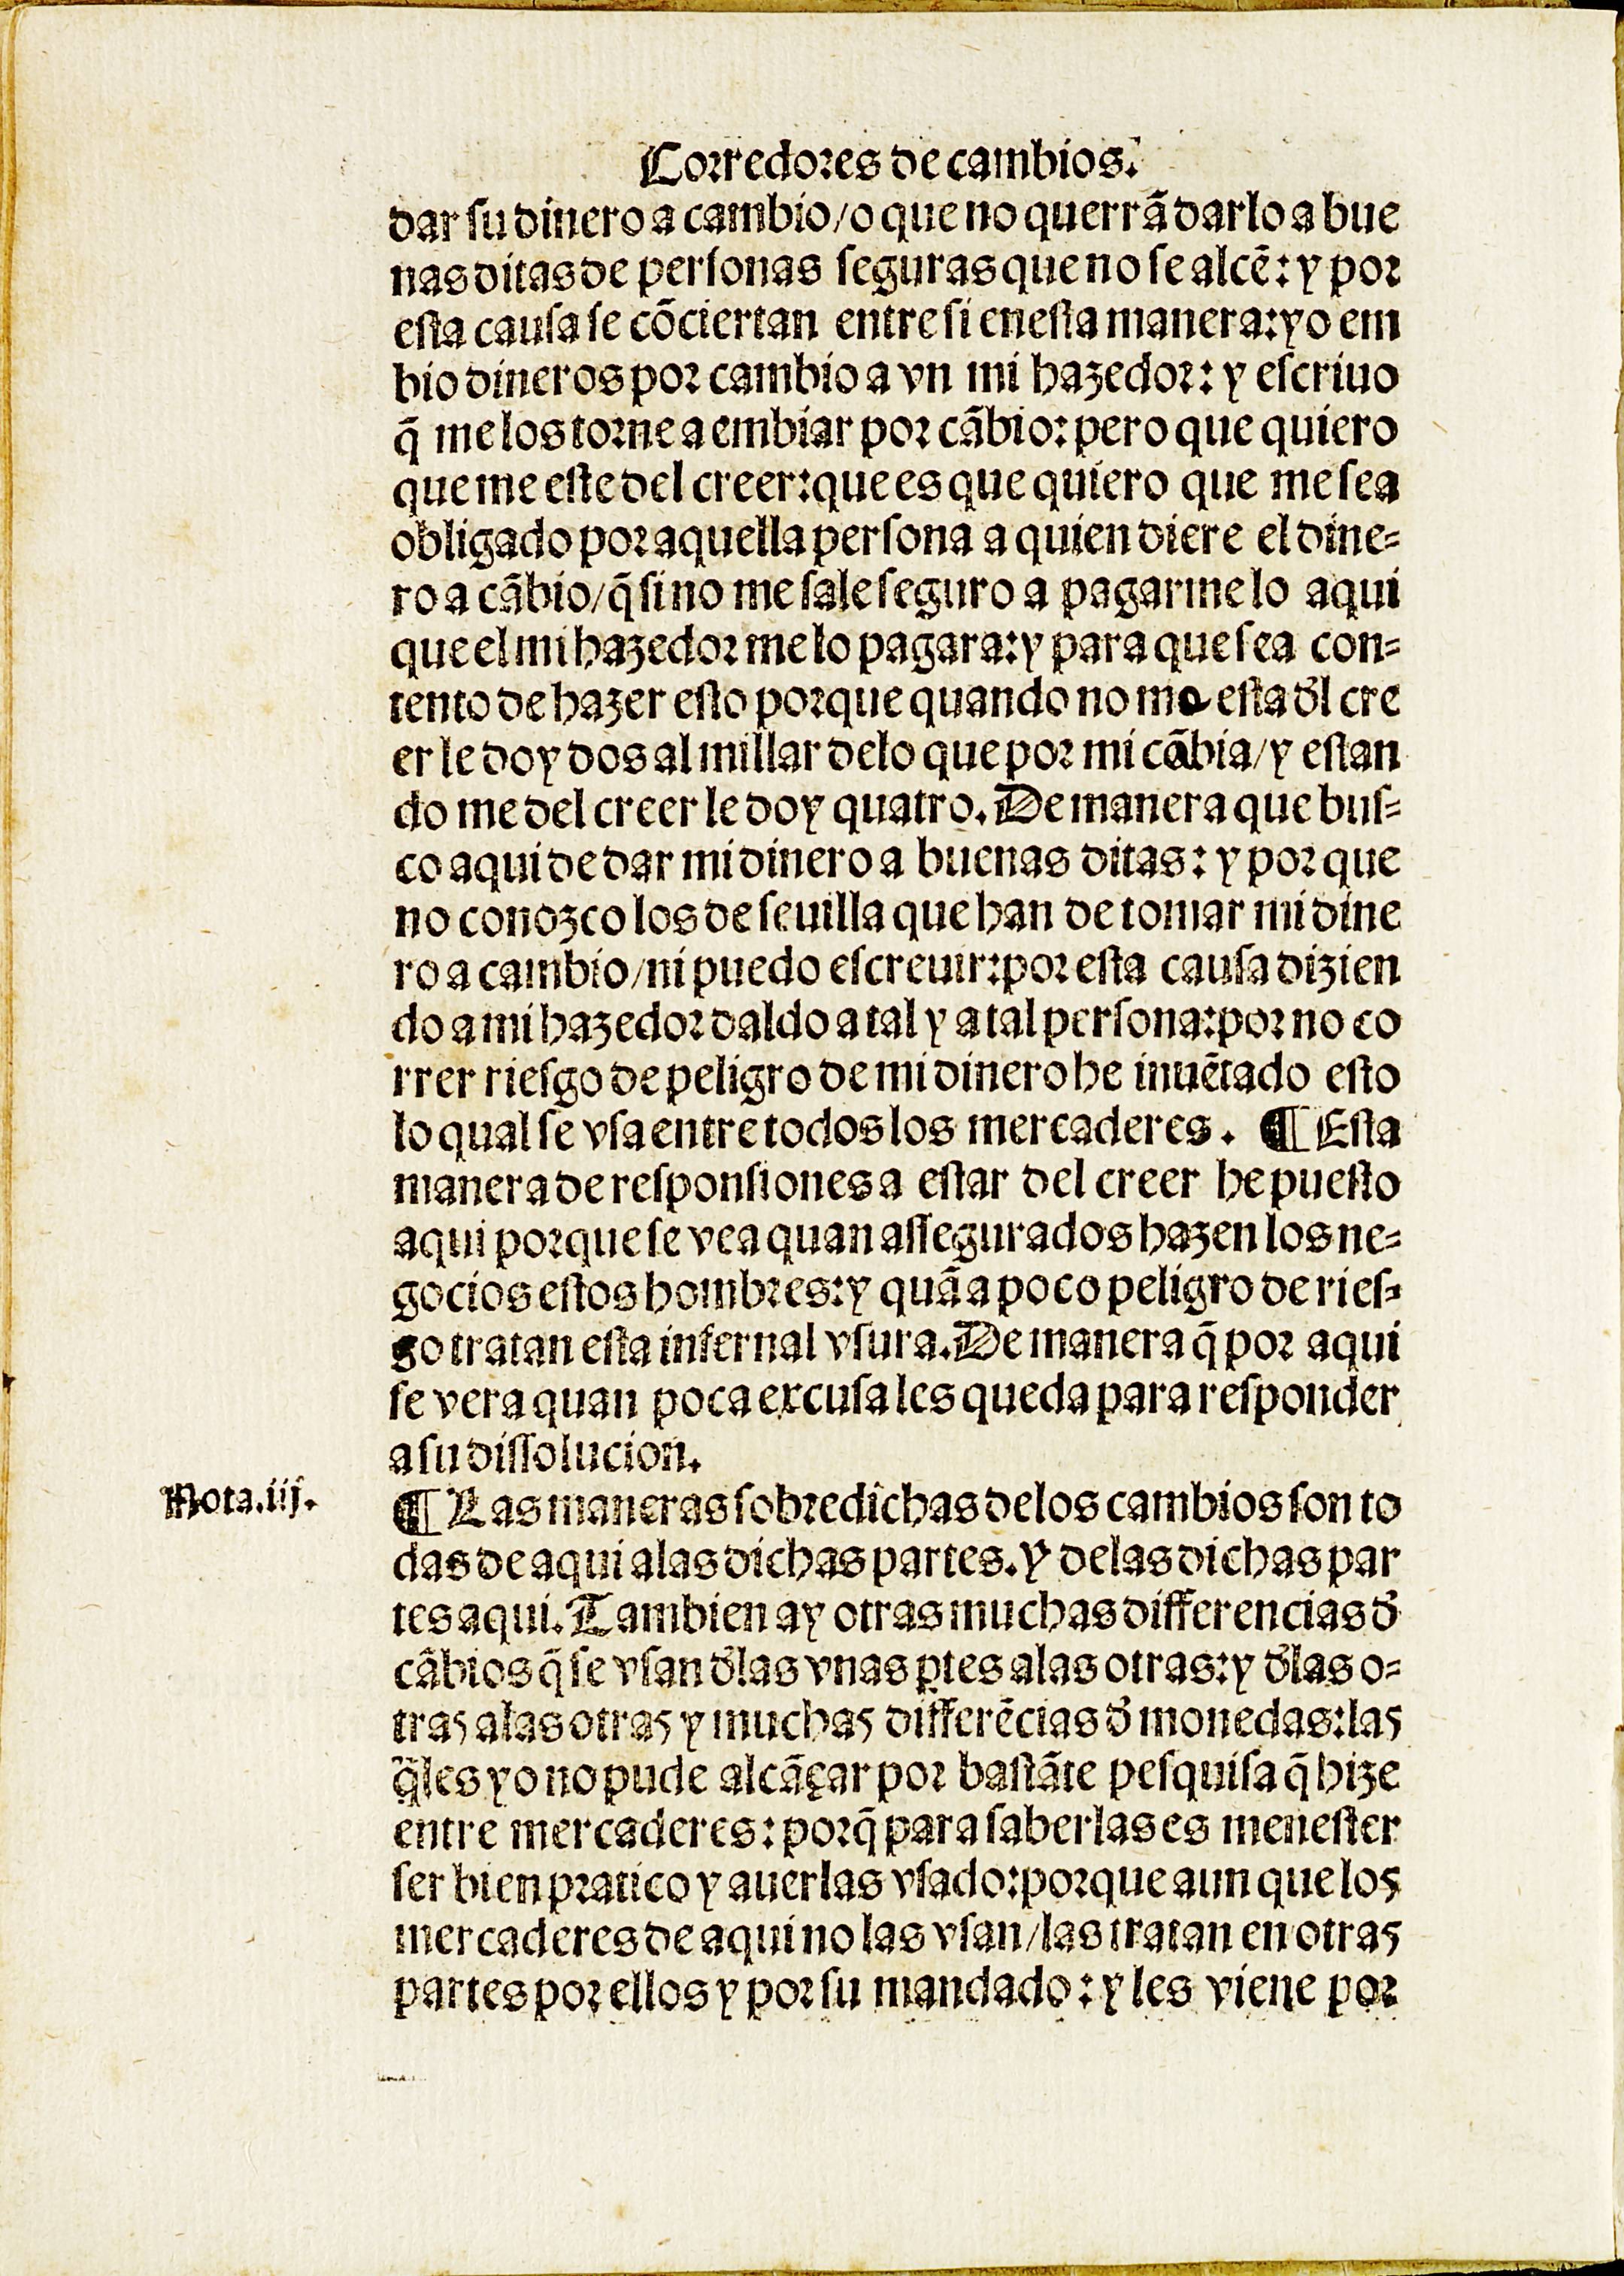 Corredores de cambios.
dar su dinero a cambio/o que no querrã darlo a bue
nas ditas de personas seguras que no se alcẽ: y por
esta causa se cõciertan entre si enesta manera: yo em
bio dineros por cambio a vn mi hazedor: y escriuo
q̃ me los torne a embiar por cãbio: pero que quiero
que me este del creer: que es que quiero que me sea
obligado por aquella persona a quien diere el dine-
ro a cãbio/q̃ si no me sale seguro a pagarmelo aqui
que el mi hazedor me lo pagara: y para que sea con-
tento de hazer esto porque quando no me esta d̃l cre
er le doy dos al millar delo que por mi cãbia/y estan
do me del creer le doy quatro. De manera que bus-
co aqui de dar mi dinero a buenas ditas: y por que
no conozco los de seuilla que han de tomar mi dine
ro a cambio/ni puedo escreuir: por esta causa dizien
do a mi hazedor daldo a tal y a tal persona: por no co
rrer riesgo de peligro de mi dinero he inuẽtado esto
lo qual se vsa entre todos los mercaderes. ¶ Esta
manera de responsiones a estar del creer he puesto
aqui porque se vea quan assegurados hazen los ne-
gocios estos hombres: y quã a poco peligro de ries-
go tratan esta infernal vsura. De manera q̃ por aqui
se vera quan poca excusa les queda para responder
a su dissolucion.
Nota.iij.
¶ Las maneras sobredichas delos cambios son to
das de aqui alas dichas partes. Y delas dichas par
tes aqui. Tambien ay otras muchas differencias d̃
cãbios q̃ se vsan d̃las vnas ꝑtes alas otras: y d̃las o-
tras alas otras y muchas differẽcias d̃ monedas: las
q̃les yo no pude alcãçar por bastãte pesquisa q̃ hize
entre mercaderes: porq̃ para saberlas es menester
ser bien pratico y auerlas vsado: porque aun que los
mercaderes de aqui no las vsan/las tratan en otras
partes por ellos y por su mandado: y les viene por